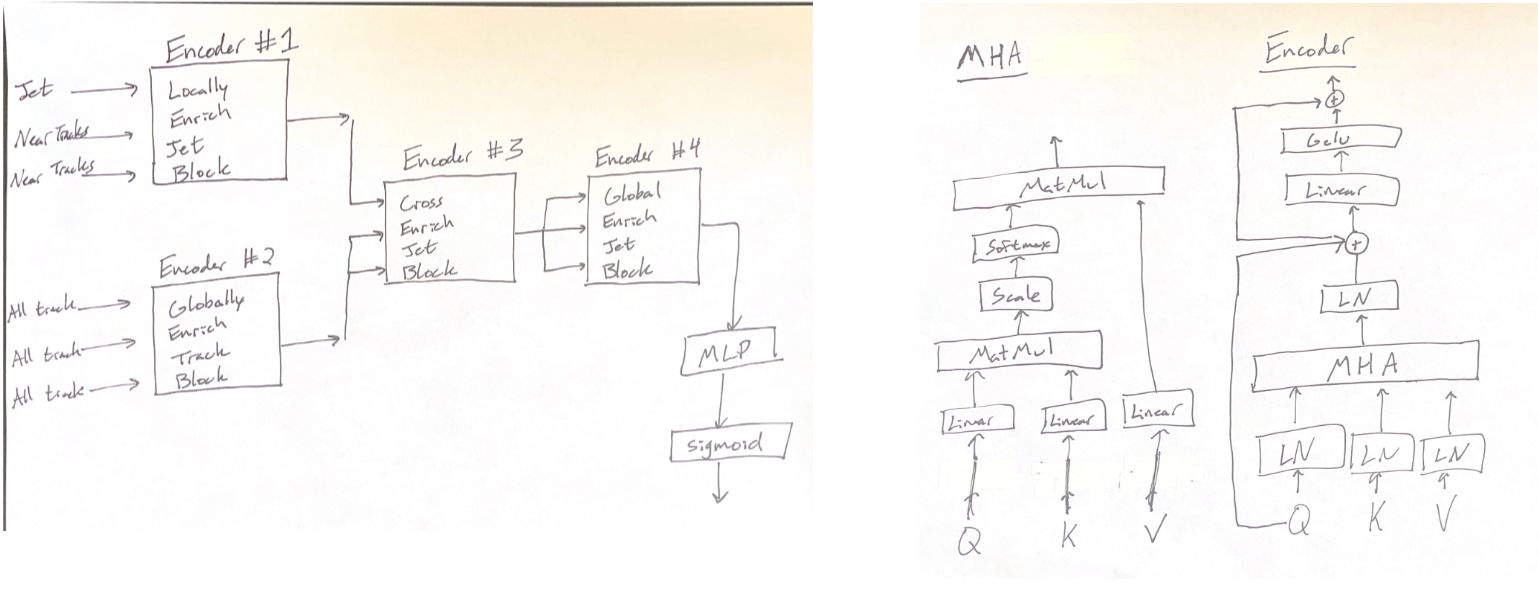 Encoder #1
Jet
Near Tracks
Near Tracks
Locally
Enrich
Jet
Block
Encoder #2
All track
All track
All track
Globally
Enrich
Track
Block
Encoder #3
Cross
Enrich
Jet
Block
Encoder #4
Global
Enrich
Jet
Block
MLP
Sigmoid
MHA
MatMul
Softmax
Scale
MatMul
Linear
Linear
Linear
Q
K
V
Encoder
+
Gelu
Linear
+
LN
MHA
LN
LN
LN
Q
K
V